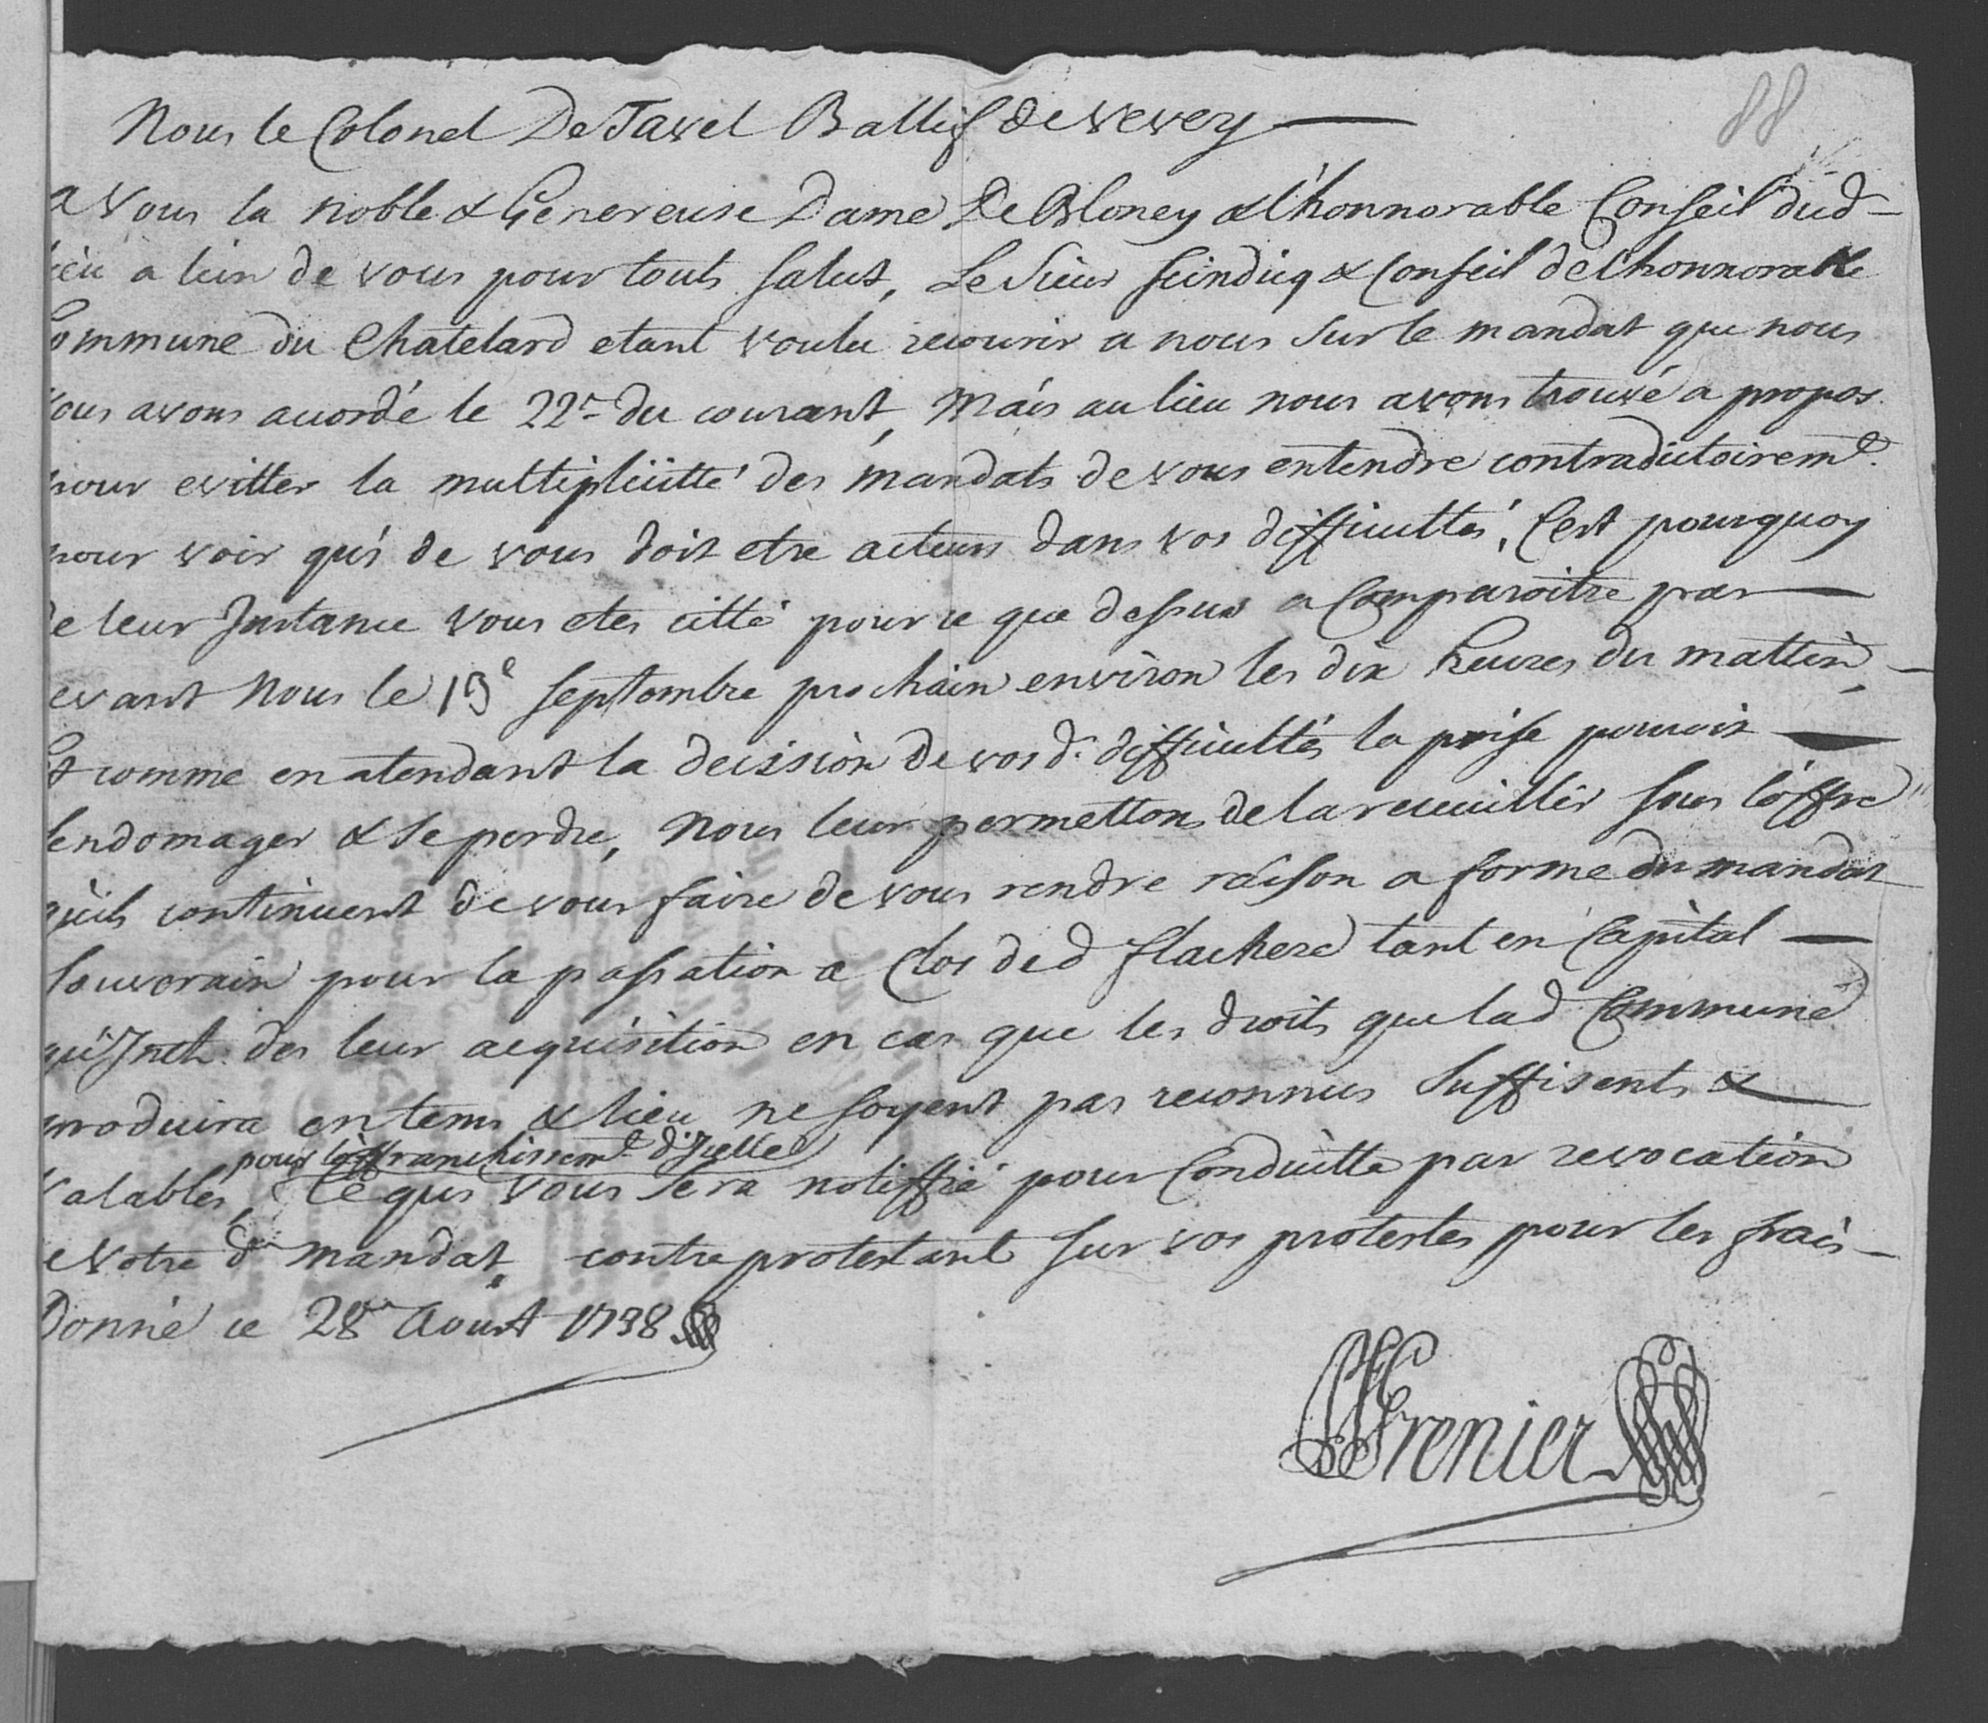 88
Nous le Colonel De Tavel Ballif de Vevey
a Vous la noble & Genereuse Dame De Bloney & l'honnorable Conseil dud
lieu a lun de vous pour touts salut, Le Sieur scindicq & Conseil de l'honnorable
Commune du Chatelard etant voulu recourir a nous sur le mandat que nous
vous avons accordé le 22e du courant, Mais au lieu nous avons trouvé a propos
pour evitter la multiplicitté des mandats de vous entendre contradictoiremt.
pour voir qui de vous doit etre acteurs dans vos difficultés, C'est pourquoy
de leur Instance vous etes citté pour ce que dessus a Comparoitre par
devant Nous le 19e septembre prochain environ les dix heures du mattin,
Et comme en atendant la decission de vos d. difficultés la prise pouroit
s'endomager & se perdre, Nous leur permettons de la recueuillir sous l'offre
qu'ils continuent de vous faire de vous rendre raison a forme du mandat
souverain pour la passation a Clos de d flachere tant en Capital
qu'Inth. des leur acquisition en cas que les droits que lad Commune
produira en tems & lieu ne soyent pas reconnus suffisents &
pour l'affranchissemt. d'Icelle
valables, Ce qui vous sera notiffié pour Conduitte par revocation
de votre d. mandat, contreprotestant sur vos protestes pour les frais
Donné ce 28e Aoust 1738
Grenier